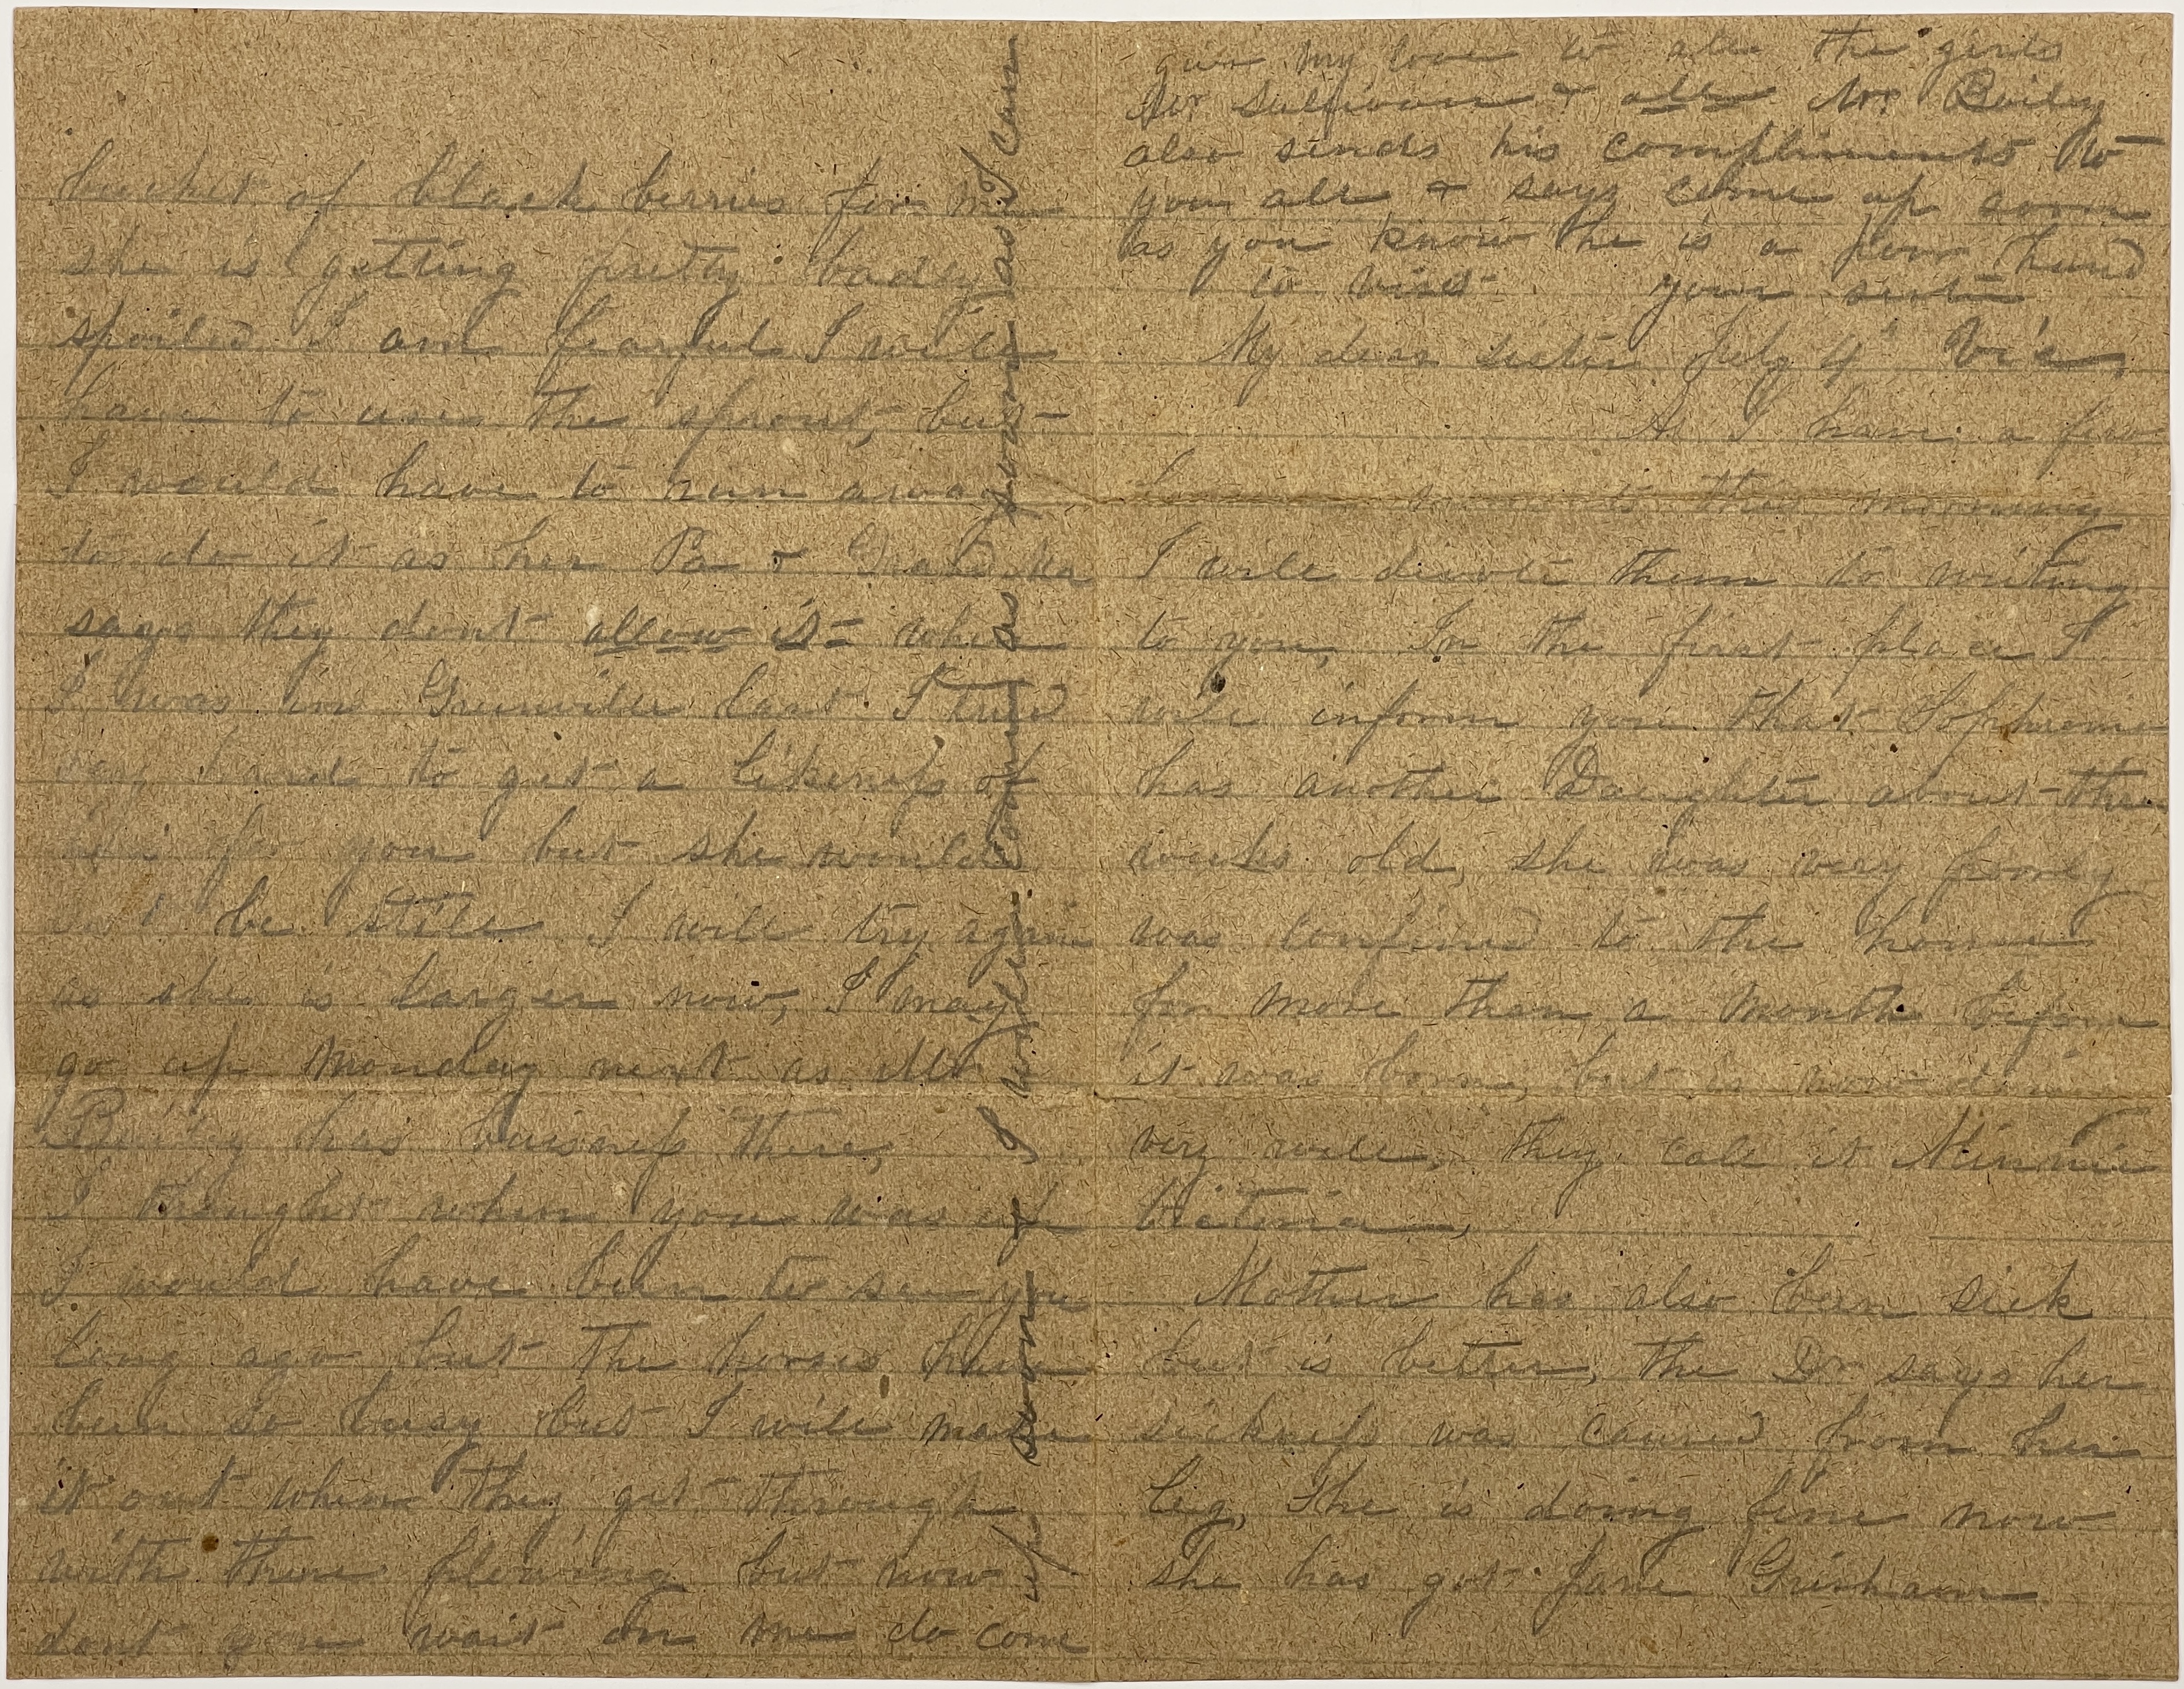 My dear sister July 4th
As I have a few
moments this morning
I will devote them to writing
to you, In the first place I
will inform you that Sophrone
has another Daughter about three
weeks old, she was very poorly
was confined to the house
for more than a month before
it was born, but is now doing
very well, they call it Minnie
Victoria,
Mother has also been sick
but is better, the Dr says her
sickness was caused from her
leg, She is doing fine now
she has got Jane Grisham
bucket of black berries for me
she is getting pretty badly
spoiled I am fearful I will
have to use the sprout, but
I would have to run away
to do it as her Pa & Grand Ma
says they dont allow it when
I was in Greenville last I tried
very hard to get a likeness of
for you but she would
not be still I will try again
as she is larger now, I may
go up Monday next as Mr
Bailey has buisness there,
I thought when you was up
I would have been to see you
long ago but the horses have
been so busy but I will make
it out when they get through
with there plowing but now
dont you wait on me do come
up soon & I will come as soon as I can
give my love to all the girls
Mr Sullivan & all Mr Bailey
also sends his compliments to
you all & says come up soon
as you know he is a poor hand
to visit your sister
Vic